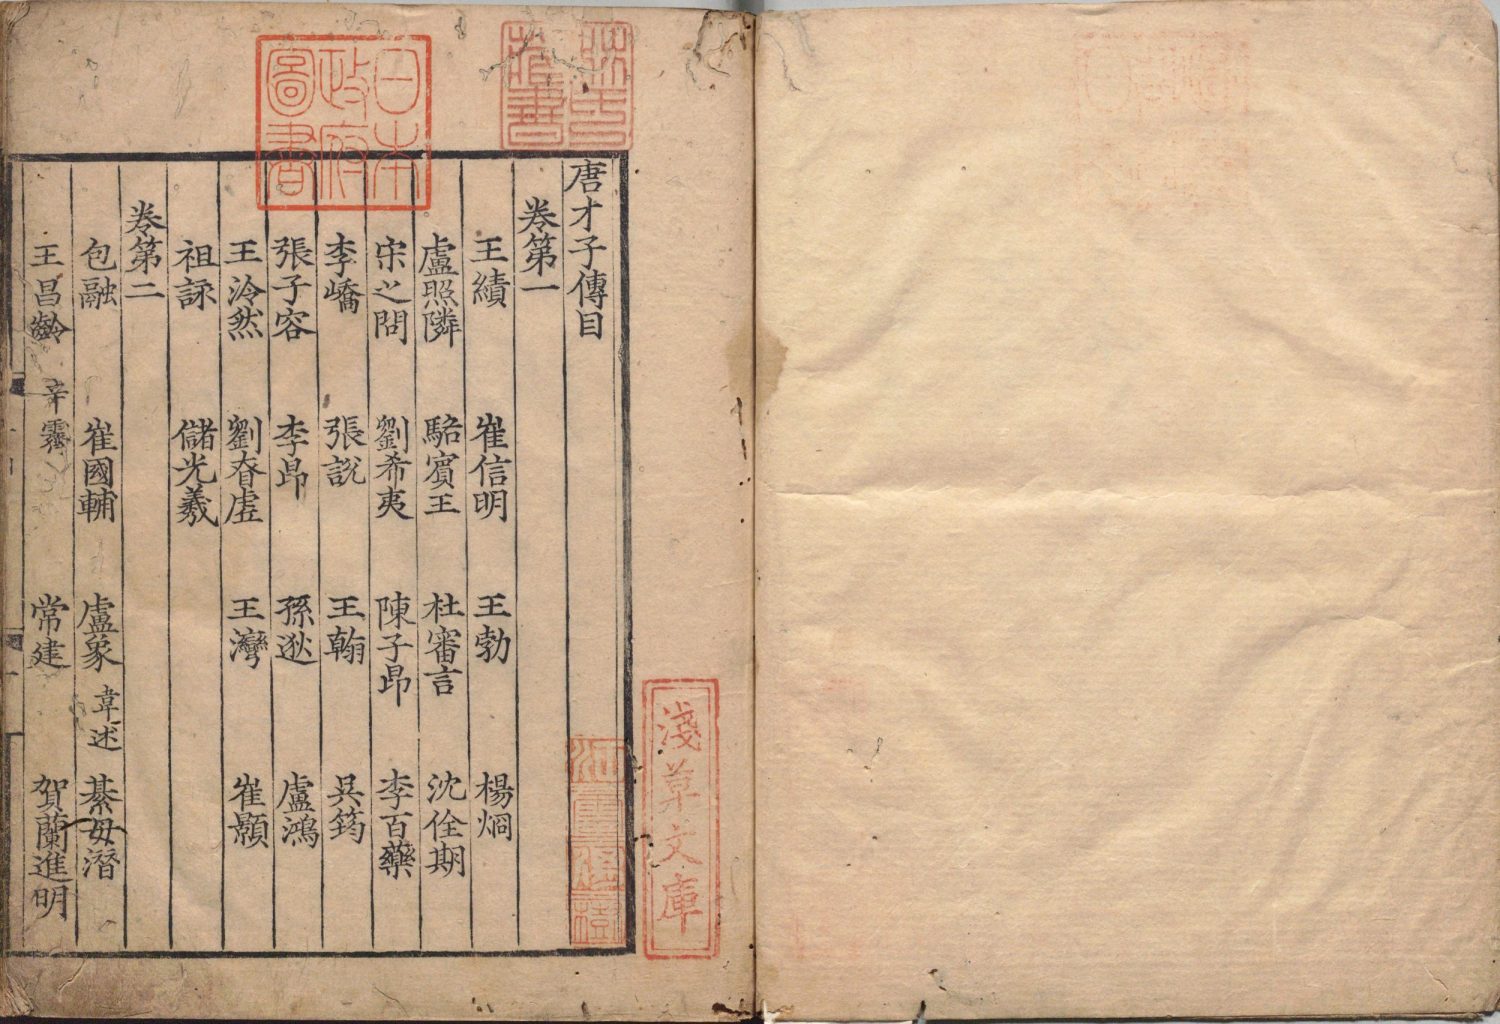 唐才子傳目
卷第一
王績 崔信明 王勃 楊烱
盧照隣 駱賓王 杜審言 沈佺期
宋之問 劉希夷 陳子昂 李百藥
李嶠 張說 王翰 吳筠
張子容 李昂 孫逖 盧鴻
王泠然 劉昚虛 王灣 崔顥
祖詠 儲光羲
卷第二
包融 崔國輔 盧象 韋述 綦毋潛
王昌齡 辛霽 常建 賀蘭進明
日本
政府
圖書
淺草文庫